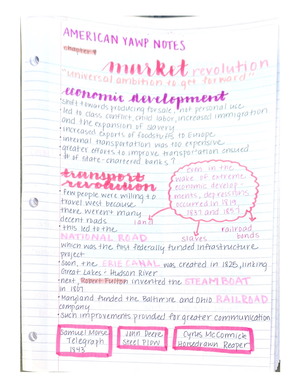 AMERICAN YAWP NOTES
chapter 8
market revolution
"universal ambition to get forward"
economic development
• shift towards producing for sale, not personal use
• led to class conflict, child labor, increased immigration and the expansion of slavery
• increased exports of foodstuffs to Europe
• internal transportation was too expensive
• greater efforts to improve transportation ensured
• # of state-chartered banks ↑
transport
revolution
• few people were willing to
travel west because
there weren't many
decent roads
• this led to the
NATIONAL ROAD
which was the first federally funded infrastructure
project
• soon, the ERIE CANAL was created in 1825, linking
Great Lakes - Hudson River
• next, Robert Fulton invented the STEAMBOAT
in 1807
• Maryland funded the Baltimore and Ohio RAILROAD
company
• such improvements provided for greater communication
even in the
wake of extreme
economic develop-
ments, depressions
occurred in 1819,
1837 and 1857
land
slaves
railroad
bonds
Samuel Morse
Telegraph
1843
John Deere
Steel Plow
Cyrus McCormick
Horsedrawn Reaper